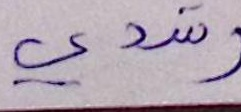 رشدي